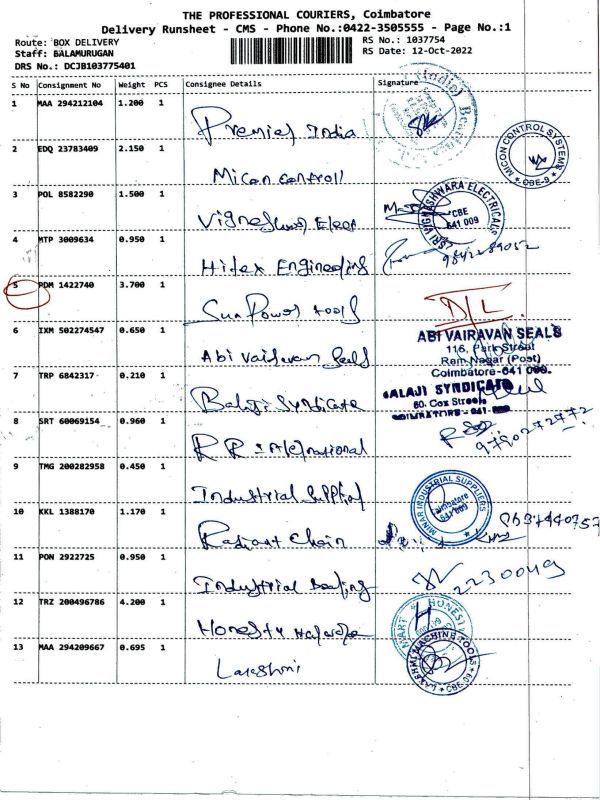 THE PROFESSIONAL COURIERS, Coimbatore
Delivery Runsheet - CMS - Phone No.:0422-3505555 - Page No.:1
Route: BOX DELIVERY
RS No.: 1037754
Staff: BALAMURUGAN
RS Date: 12-Oct-2022
DRS No.: DCJB103775401
S No Consignment No Weight PCS Consignee Details Signature
1 MAA 294212104 1.200 1
Premier India
2 EDQ 23783409 2.150 1
MICON CONTROL SYSTEMS
CBE-9
Micon Controll
3 POL 8582290 1.500 1
SRI VIGNESHWARA ELECTRICALS
CBE
641 009
Vigneshwara Elect
4 MTP 3009634 0.950 1
9842289052
Hitex Engineering
5 PDM 1422740 3.700 1
D/L
Sun Power tools
6 IXM 502274547 0.650 1
ABI VAIRAVAN SEALS
116, Park Street
Ram Nagar (Post)
Coimbatore-641 009.
Abi Vairavan Seals
7 TRP 6842317 0.210 1
BALAJI SYNDICATE
60. Cox Street
COIMBATORE - 641
Balaji Syndicate
8 SRT 60069154 0.960 1
9790272772
R R International
9 TMG 200282958 0.450 1
MINAR INDUSTRIAL SUPPLIERS
Coimbatore
641 009
Industrial Supplier
10 KKL 1388170 1.170 1
Radiant Chain
11 PON 2922725 0.950 1
2230049
Industrial Bearing
12 TRZ 200496786 4.200 1
HONEST
MART
Honesty
13 MAA 294209667 0.695 1
LAKSHMI MACHINE TOOLS
Lakshmi